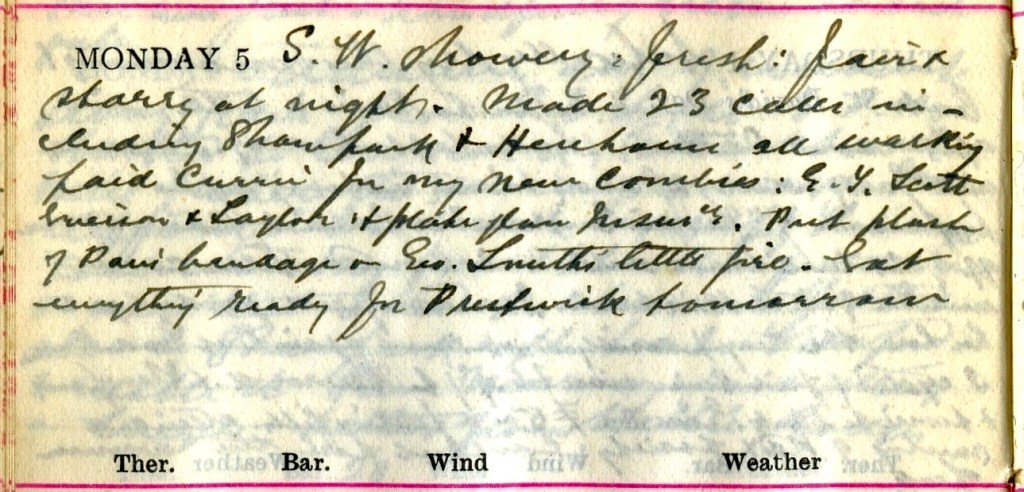 MONDAY 5 S. W. showery: fresh: fair &
starry at night. Made 23 calls in-
cluding Shawpark & all walking
paid Currie for my new Combies: E. Y. Scott
& Taylor: & plate glan Insuce. Put plaster
of Paris bandage on Geo. Smith's little
everything ready for Prestwick tomorrow
Ther. Bar. Wind Weather